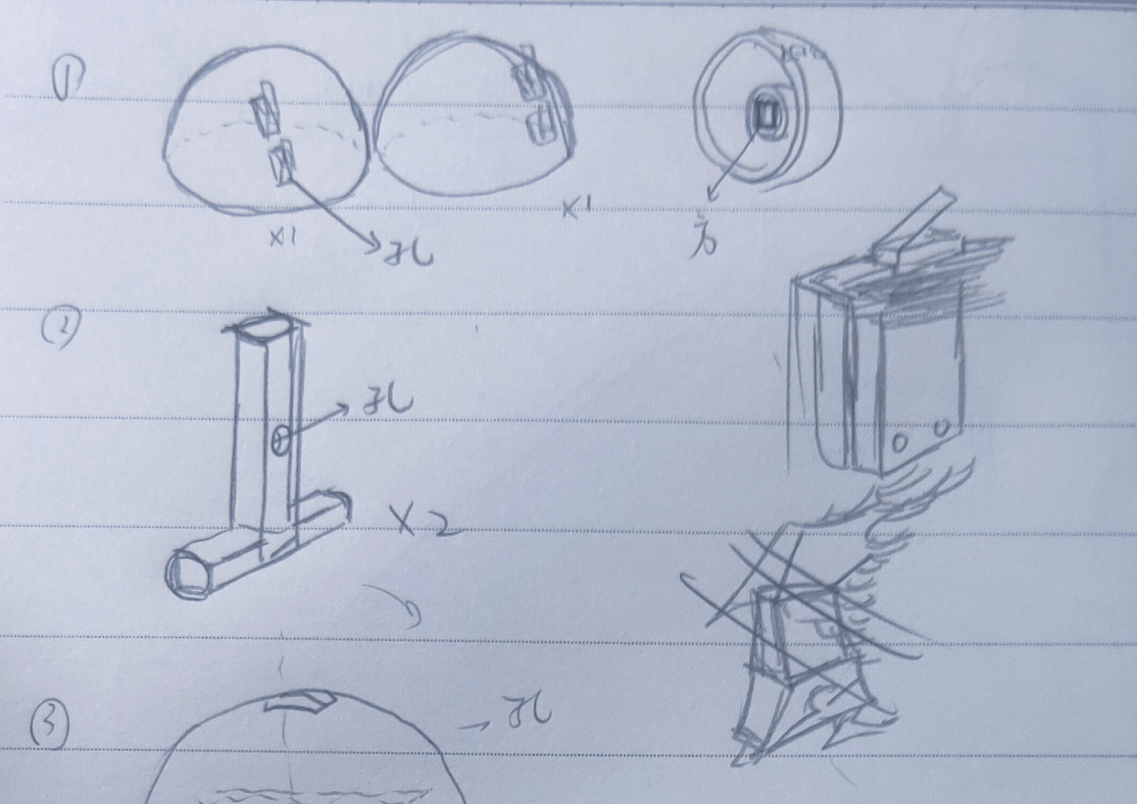 ①
×1 孔
×1
方
②
孔
×2
③
孔